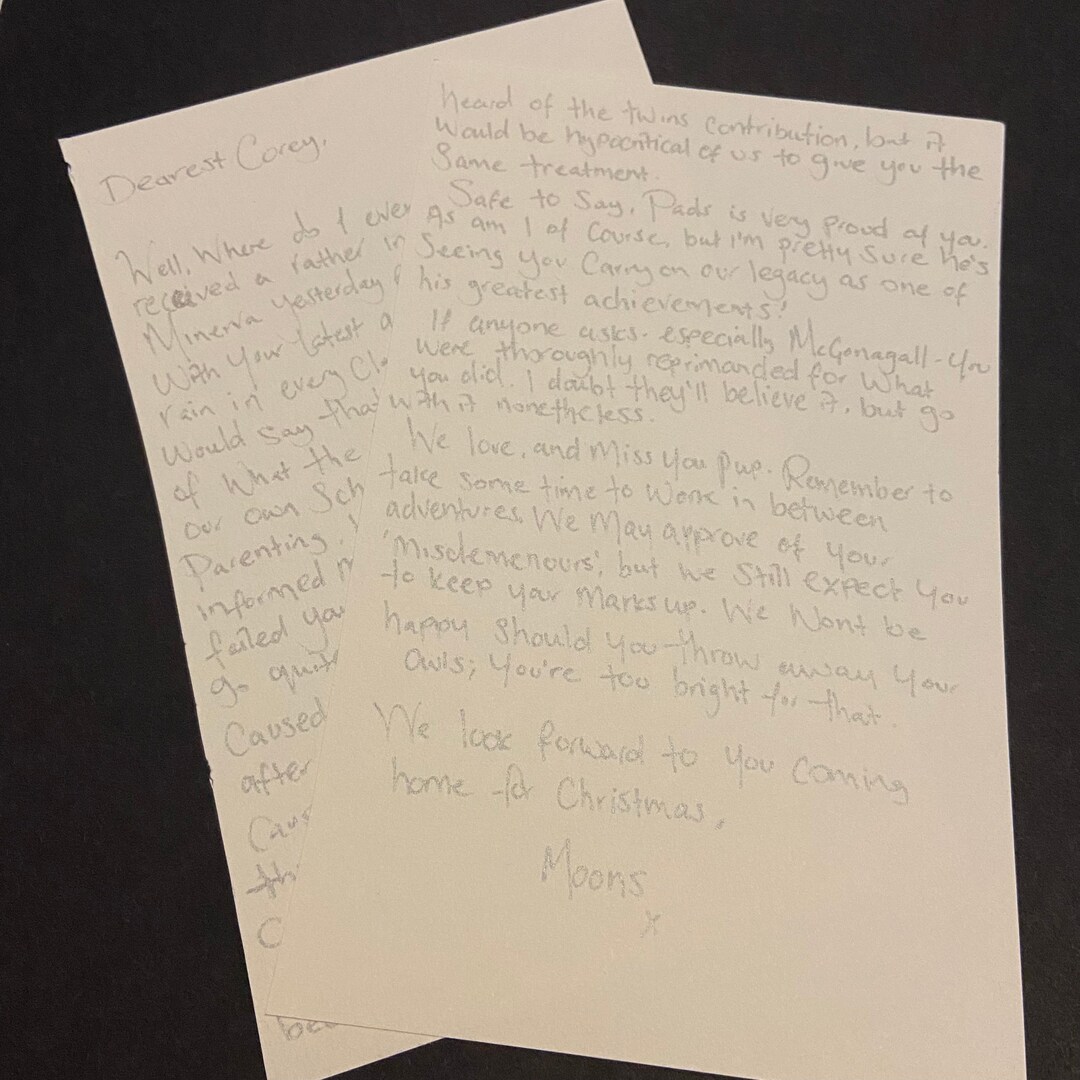 Dearest Corey,
Well, Where do I ever
received a rather
Minerva yesterday
With your latest
rain in every
Would say that
of What the
our own
Parenting.
informed
failed you
go
Caused
after
heard of the twins contribution, but it
Would be hypocritical of us to give you the
Same treatment.
Safe to Say, Pads is very proud of you.
As am I of Course, but I'm pretty Sure he's
Seeing you Carry on our legacy as one of
his greatest achievements!
If anyone asks- especially McGonagall- you
were thoroughly reprimanded for What
you did. I doubt they'll believe it, but go
With it nonetheless.
We love, and Miss you pup. Remember to
take some time to Work in between
adventures. We May approve of your
'Misdemenours', but we Still expect you
to keep your Marks up. We Wont be
happy Should you throw away your
Owls; you're too bright for that.
We look forward to you Coming
home for Christmas,
Moons
x